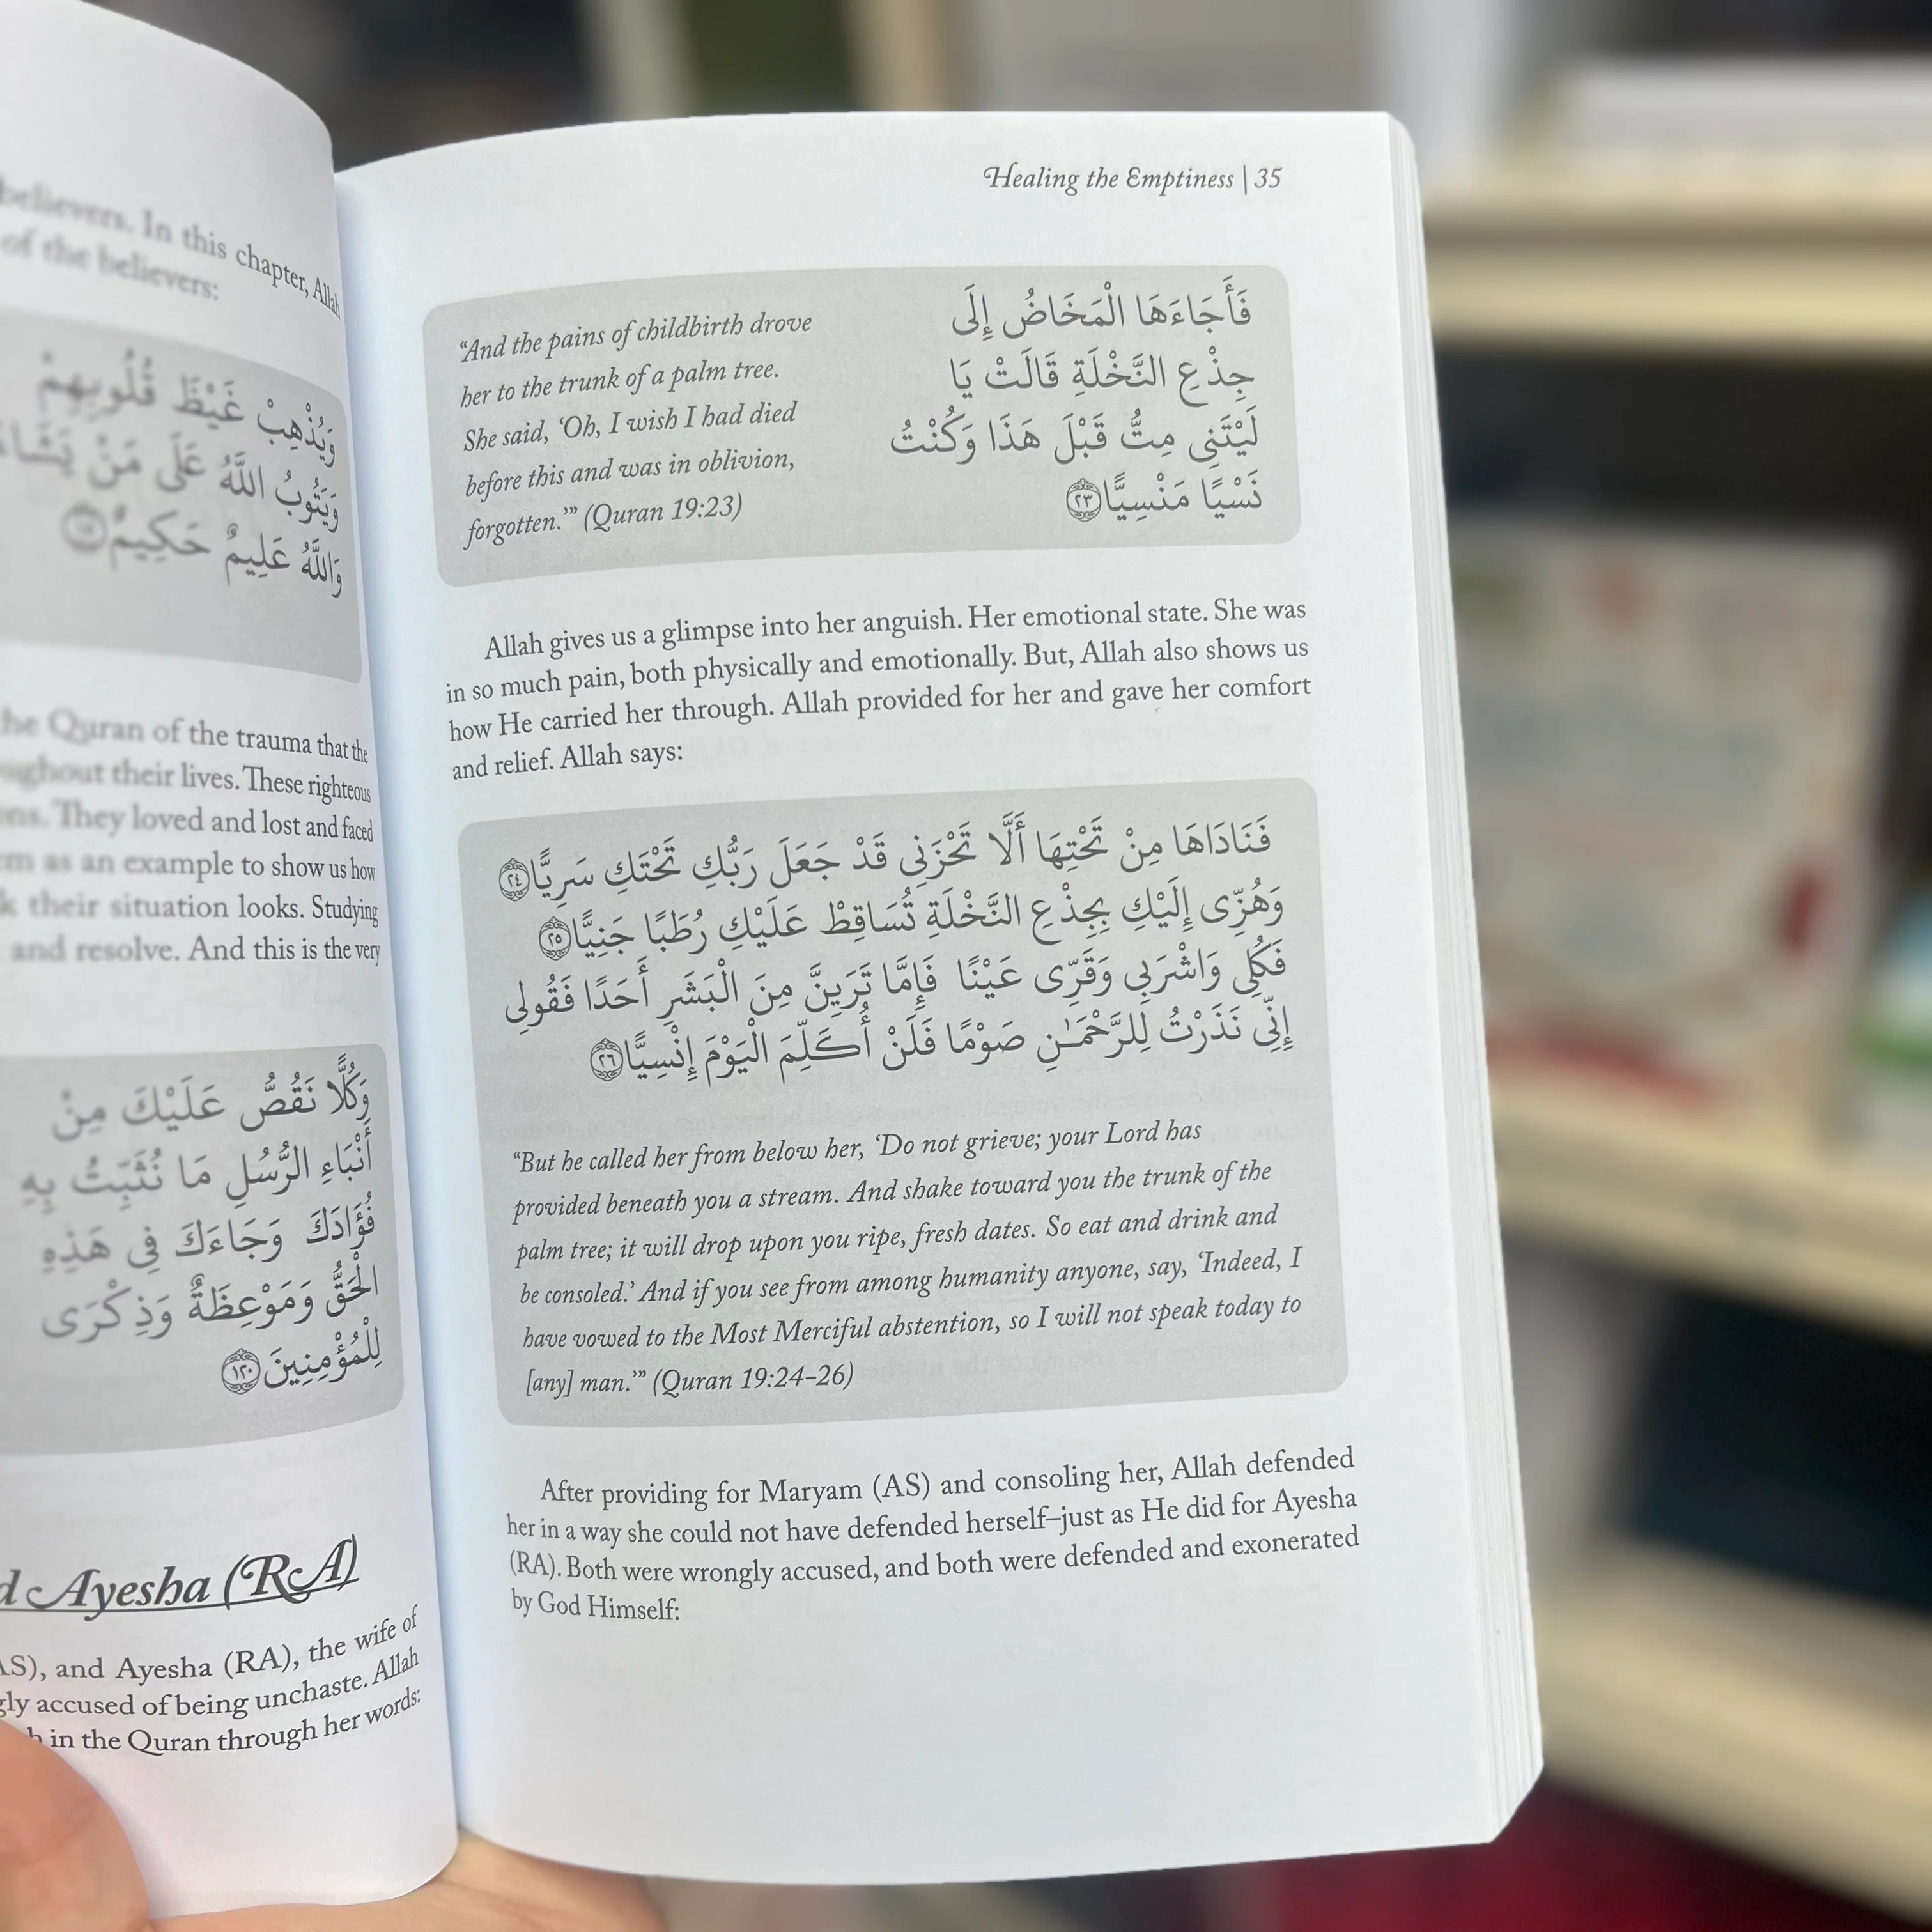 believers. In this chapter, Allah
of the believers:
وَيُذْهِبْ غَيْظَ قُلُوبِهِمْ
وَيَتُوبُ اللَّهُ عَلَى مَنْ يَشَاءُ
وَاللَّهُ عَلِيمٌ حَكِيمٌ
the Quran of the trauma that the
their lives. These righteous
They loved and lost and faced
as an example to show us how
their situation looks. Studying
and resolve. And this is the very
وَكُلًّا نَقُصُّ عَلَيْكَ مِنْ
أَنْبَاءِ الرُّسُلِ مَا نُثَبِّتُ بِهِ
فُؤَادَكَ وَجَاءَكَ فِى هَذِهِ
الْحَقُّ وَمَوْعِظَةٌ وَذِكْرَى
لِلْمُؤْمِنِينَ ١٢٠
Ayesha (RA)
AS), and Ayesha (RA), the wife of
accused of being unchaste. Allah
in the Quran through her words:
Healing the Emptiness | 35
“And the pains of childbirth drove
her to the trunk of a palm tree.
She said, ‘Oh, I wish I had died
before this and was in oblivion,
forgotten.’” (Quran 19:23)
فَأَجَاءَهَا الْمَخَاضُ إِلَى
جِذْعِ النَّخْلَةِ قَالَتْ يَا
لَيْتَنِى مِتُّ قَبْلَ هَذَا وَكُنْتُ
نَسْيًا مَنْسِيًّا ٢٣
Allah gives us a glimpse into her anguish. Her emotional state. She was
in so much pain, both physically and emotionally. But, Allah also shows us
how He carried her through. Allah provided for her and gave her comfort
and relief. Allah says:
فَنَادَاهَا مِنْ تَحْتِهَا أَلَّا تَحْزَنِى قَدْ جَعَلَ رَبُّكِ تَحْتَكِ سَرِيًّا ٢٤
وَهُزِّى إِلَيْكِ بِجِذْعِ النَّخْلَةِ تُسَاقِطْ عَلَيْكِ رُطَبًا جَنِيًّا ٢٥
فَكُلِى وَاشْرَبِى وَقَرِّى عَيْنًا فَإِمَّا تَرَيِنَّ مِنَ الْبَشَرِ أَحَدًا فَقُولِى
إِنِّى نَذَرْتُ لِلرَّحْمَـٰنِ صَوْمًا فَلَنْ أُكَلِّمَ الْيَوْمَ إِنْسِيًّا ٢٦
“But he called her from below her, ‘Do not grieve; your Lord has
provided beneath you a stream. And shake toward you the trunk of the
palm tree; it will drop upon you ripe, fresh dates. So eat and drink and
be consoled.’ And if you see from among humanity anyone, say, ‘Indeed, I
have vowed to the Most Merciful abstention, so I will not speak today to
[any] man.’” (Quran 19:24–26)
After providing for Maryam (AS) and consoling her, Allah defended
her in a way she could not have defended herself–just as He did for Ayesha
(RA). Both were wrongly accused, and both were defended and exonerated
by God Himself: